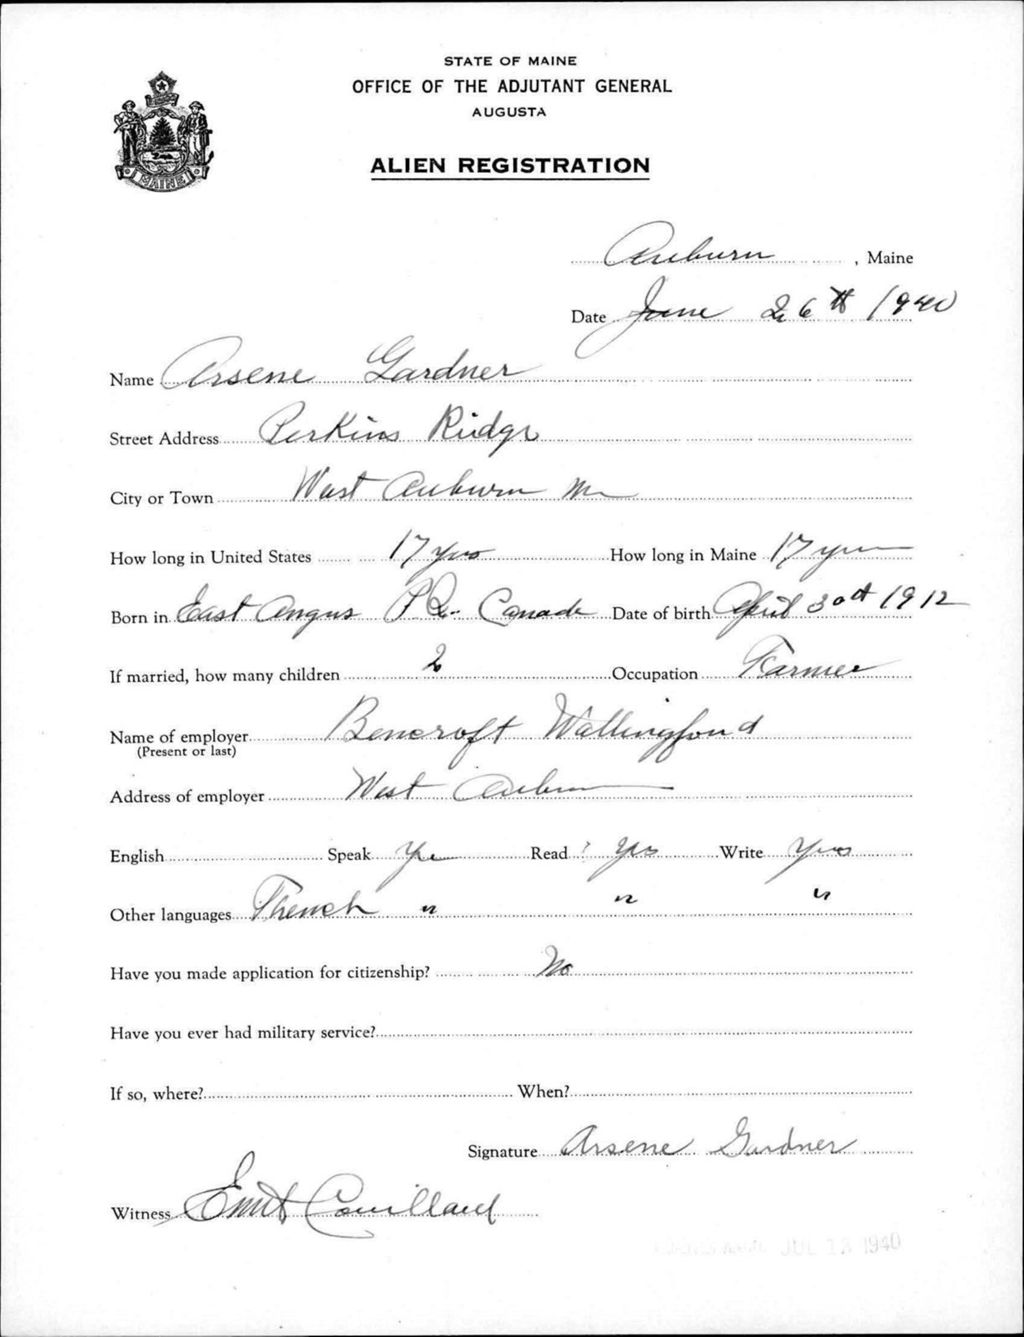 STATE OF MAINE
OFFICE OF THE ADJUTANT GENERAL
AUGUSTA
MAINE
ALIEN REGISTRATION
Auburn, Maine
Date June 26th 1940
Name Arsene Gardner
Street Address Perkins Ridge
City or Town West Auburn Me
How long in United States 17 yrs How long in Maine 17 yrs
Born in East Angus P.Q. Canada Date of birth April 30th 1912
If married, how many children 2 Occupation Farmer
Name of employer Bencroft Wallingford
(Present or last)
Address of employer West Auburn
English Speak Yes Read Yes Write Yes
Other languages French " " "
Have you made application for citizenship? No
Have you ever had military service?
If so, where? When?
Signature Arsene Gardner
Witness Couillard
JUL 13 1940